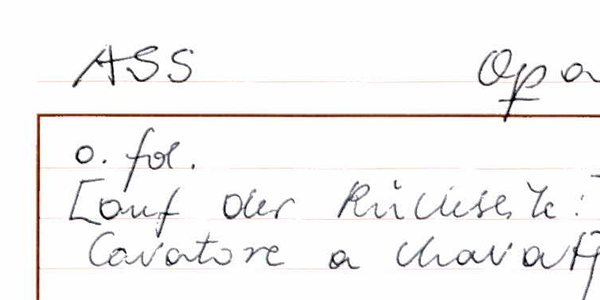 ASS Opa
o. fol.
[auf der Rückseite:
Cavatore a